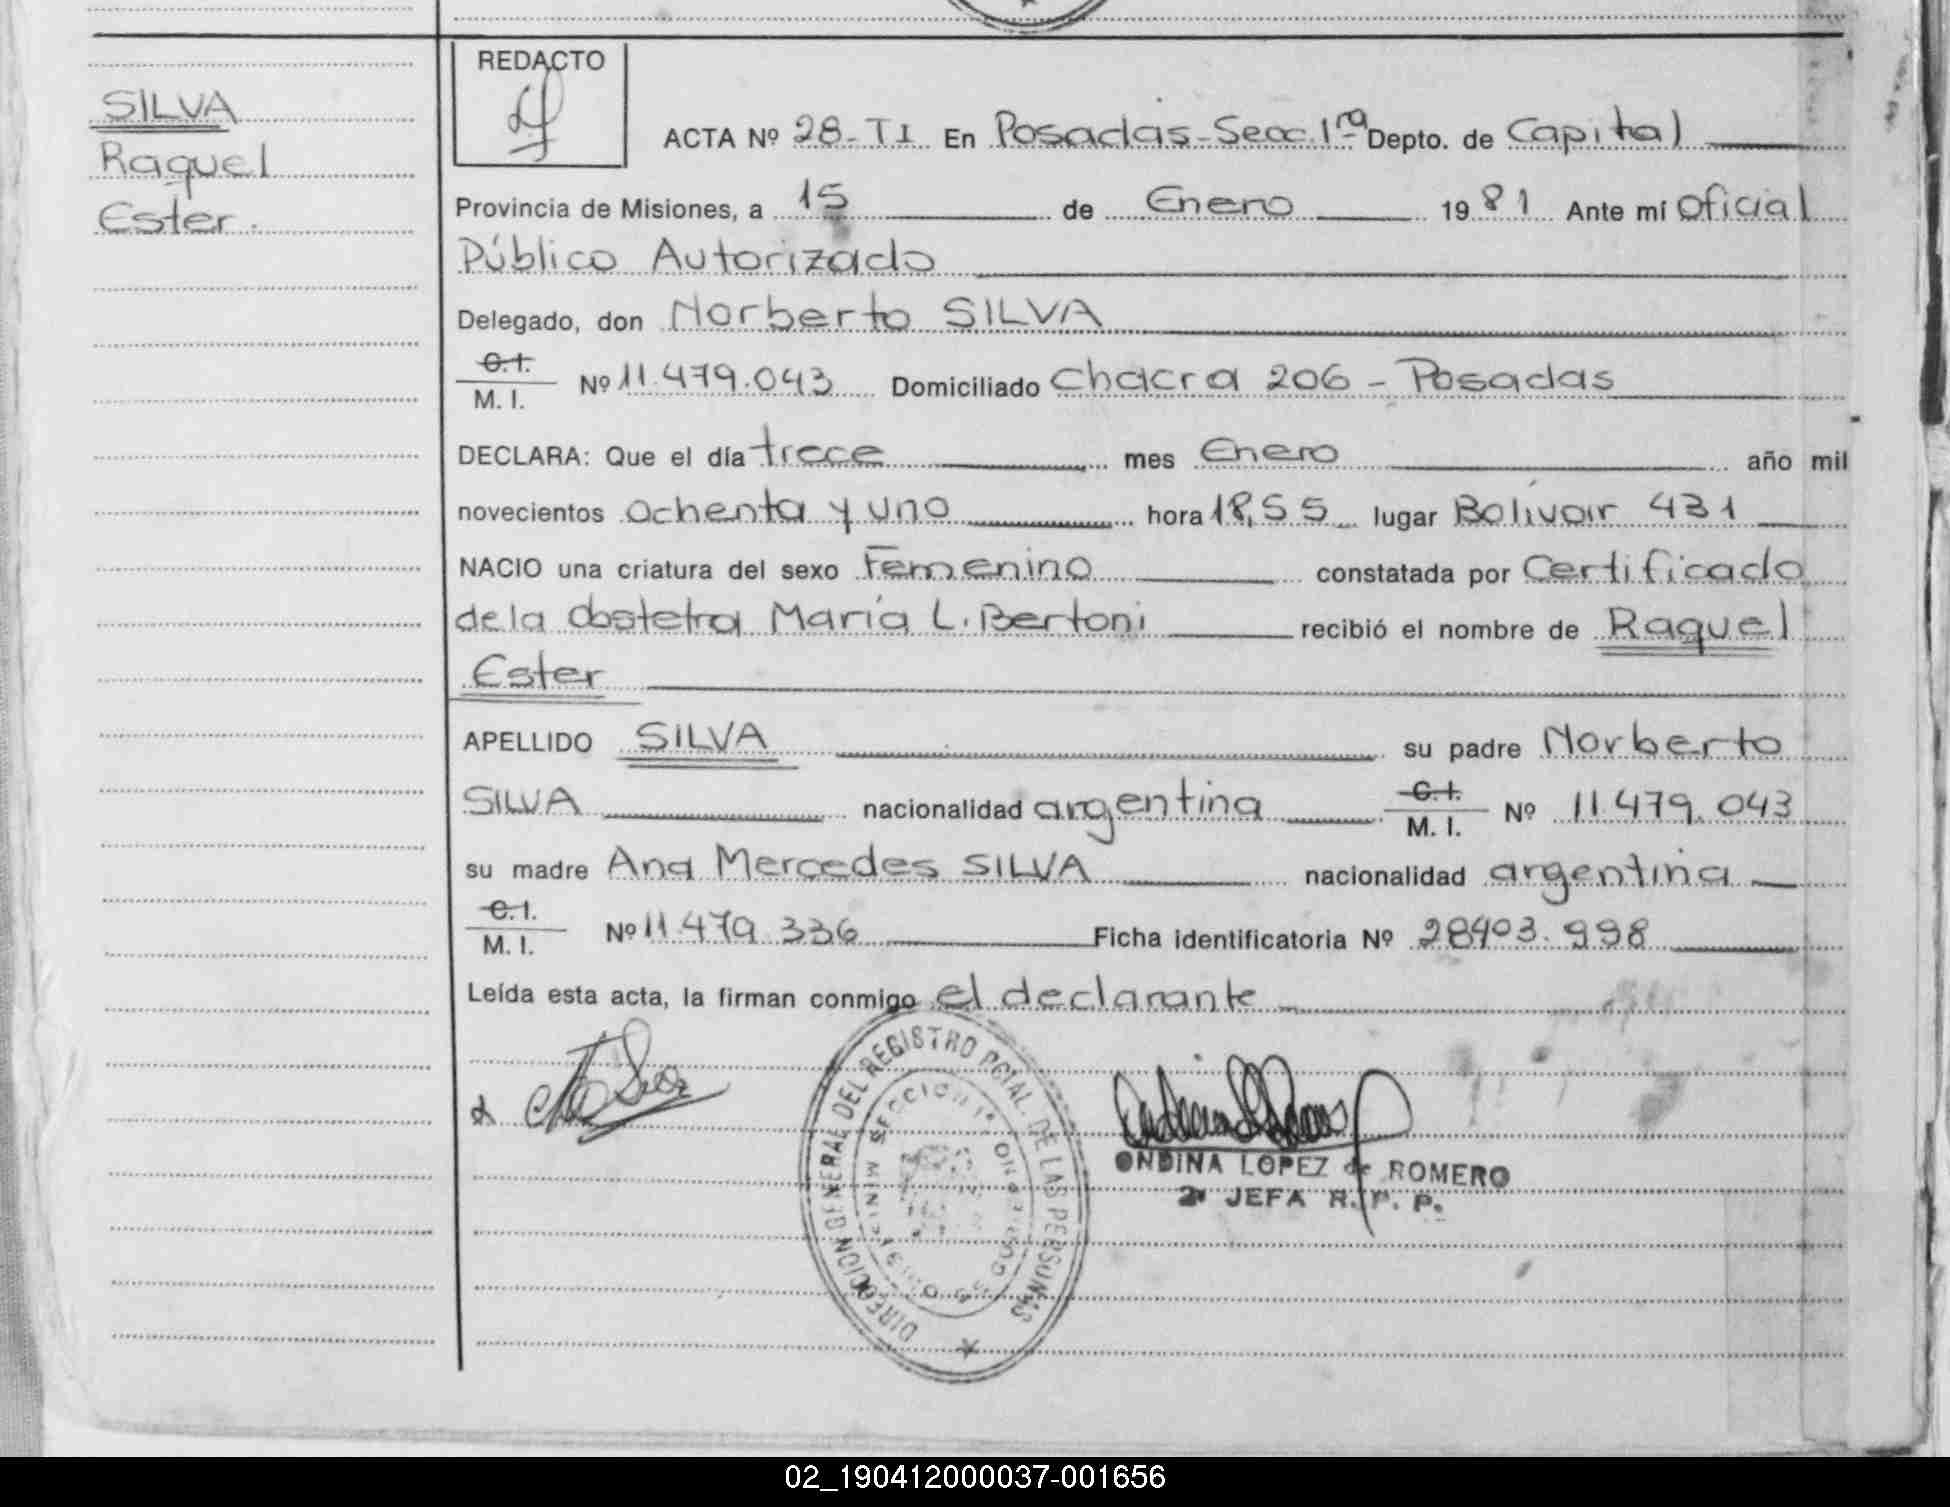 SILVA
Raquel
Ester.
REDACTO
ACTA Nº 28-TI En Posadas-Secc. 1ra Depto. de Capital
Provincia de Misiones, a 15 de Enero 1981 Ante mi Oficial
Público Autorizado
Delegado, don Norberto SILVA
C.I.
M. I. Nº 11.479.043 Domiciliado Chacra 206 - Posadas
DECLARA: Que el día trece mes Enero año mil
novecientos ochenta y uno hora 18,55 lugar Bolívar 431
NACIO una criatura del sexo Femenino constatada por Certificado
de la obstetra María L. Bertoni recibió el nombre de Raquel
Ester
APELLIDO SILVA su padre Norberto
SILVA nacionalidad argentina C.I. M. I. Nº 11.479.043
su madre Ana Mercedes SILVA nacionalidad argentina
C.I.
M. I. Nº 11.479.336 Ficha identificatoria Nº 28403.998
Leída esta acta, la firman conmigo el declarante
DIRECCION GENERAL DEL REGISTRO PCIAL. DE LAS PERSONAS
SECCION 1ª
ONDINA LOPEZ de ROMERO
2ª JEFA R. P. P.
02_190412000037-001656